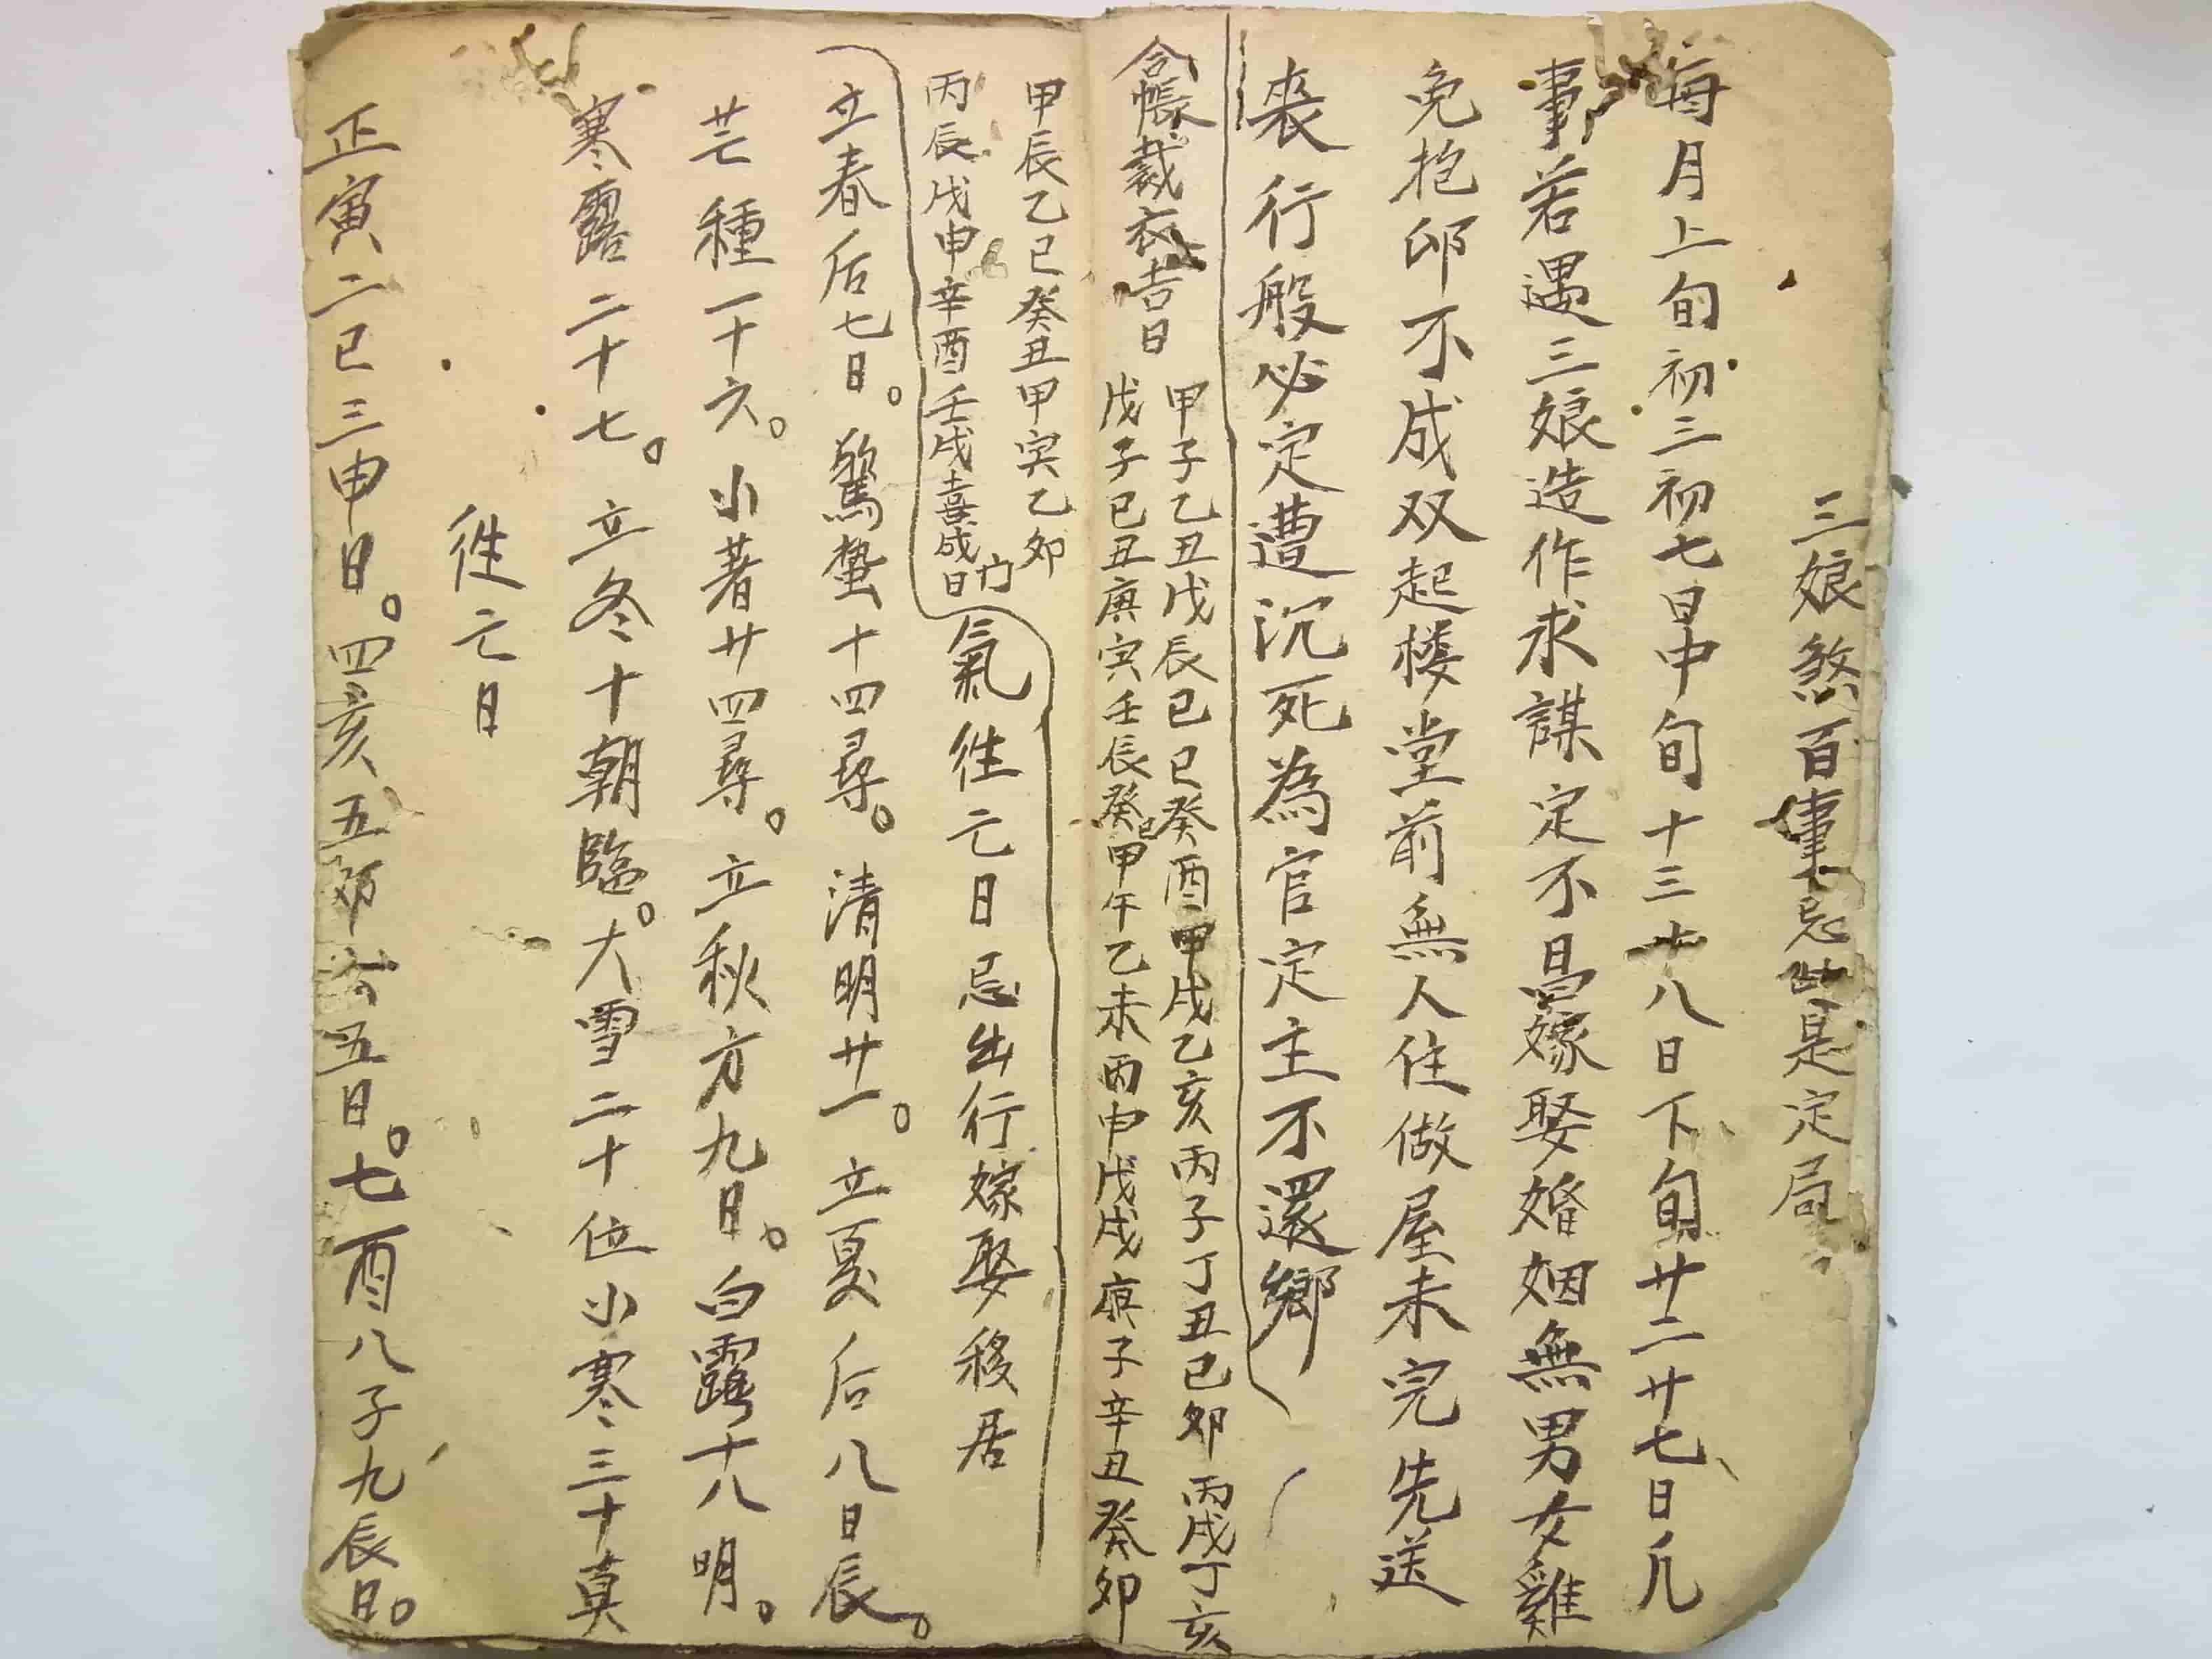 三娘煞百事忌此是定局
每月上旬初三初七日中旬十三十八日下旬廿二廿七日凢
事若遇三娘造作求謀定不昌嫁娶婚姻無男女雞
免抱卵不成双起楼堂前無人住做屋未完先送
丧行般必定遭沉死為官定主不還鄉
合帳裁衣吉日
甲子乙丑戊辰己巳癸酉甲戌乙亥丙子丁丑己卯丙戌丁亥
戊子己丑庚寅壬辰癸巳甲午乙未丙申戊戌庚子辛丑癸卯
甲辰乙巳癸丑甲寅乙卯
丙辰戊申辛酉壬戌喜成日
氣徃亡日忌出行嫁娶移居
立春后七日。驚蟄十四尋。清明廿一。立夏后八日辰。
芒種一十六。小著廿四尋。立秋方九日。白露十八明。
寒露二十七。立冬十朝臨。大雪二十位小寒三十莫
徃亡日
正寅二巳三申日。四亥五卯六五日。七酉八子九辰日。